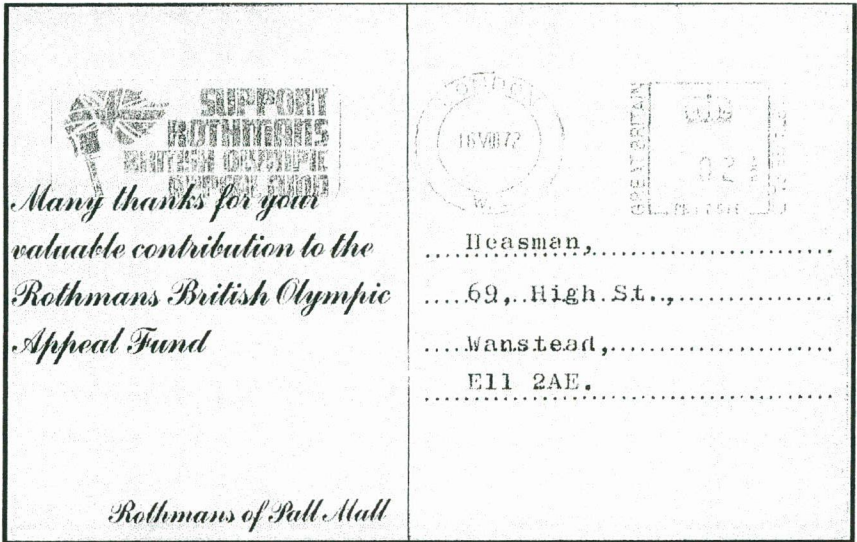 SUPPORT
ROTHMANS
BRITISH OLYMPIC
APPEAL FUND
Many thanks for your
valuable contribution to the
Rothmans British Olympic
Appeal Fund
Rothmans of Pall Mall
LONDON
W.
GREAT BRITAIN
Heasman,
69, High St.,
Wanstead,
E11 2AE.